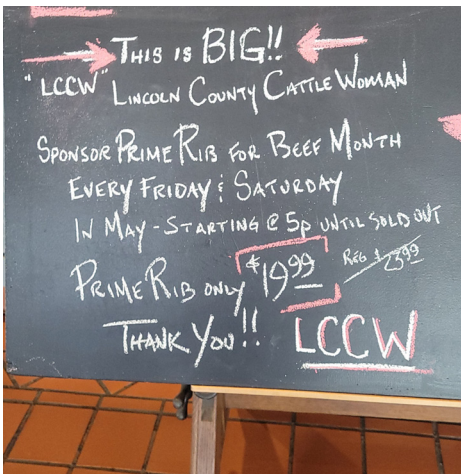 THIS IS BIG!!
"LCCW" LINCOLN COUNTY CATTLE WOMAN
SPONSOR PRIME RIB FOR BEEF MONTH
EVERY FRIDAY & SATURDAY
IN MAY - STARTING @ 5p UNTIL SOLD OUT
PRIME RIB ONLY $19.99 REG $23.99
THANK YOU!! LCCW